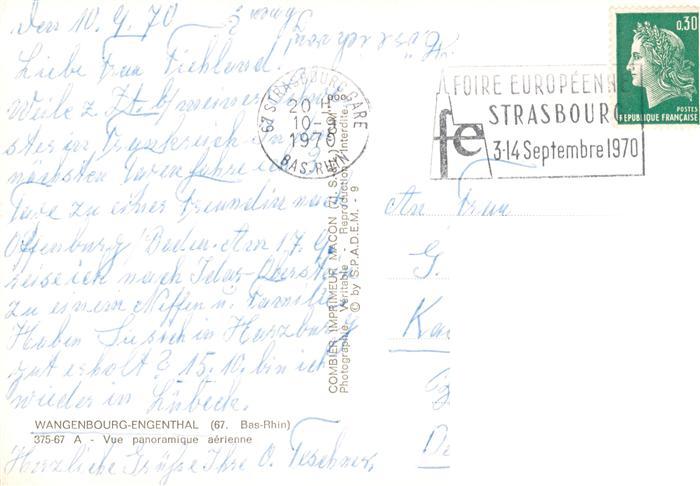 den 10.9.70
Liebe Frau
Weile z. Zt. b/ meiner
ster in Frankreich in
nächsten Tagen fahre ich
Tage zu einer Freundin nach
Offenburg/Baden. Am 17.9.
reise ich nach Idar-Oberst
zu einem Neffen u. Familie
Haben Sie sich in Harzburg
gut erholt? 15.10. bin ich
wieder in Lübeck.
WANGENBOURG-ENGENTHAL (67. Bas-Rhin)
375-67 A - Vue panoramique aérienne
Herzliche Grüße Ihre O. Teschner
COMBIER IMPRIMEUR MACON (71 S.&L.)
Photographie Véritable - Reproduction Interdite
© by S.P.A.D.E.M. - 9
67 STRASBOURG GARE
20 H
10-9
1970
BAS-RHIN
FOIRE EUROPÉENNE
STRASBOURG
fe
3-14 Septembre 1970
0,30
POSTES
REPUBLIQUE FRANÇAISE
An Frau
G.